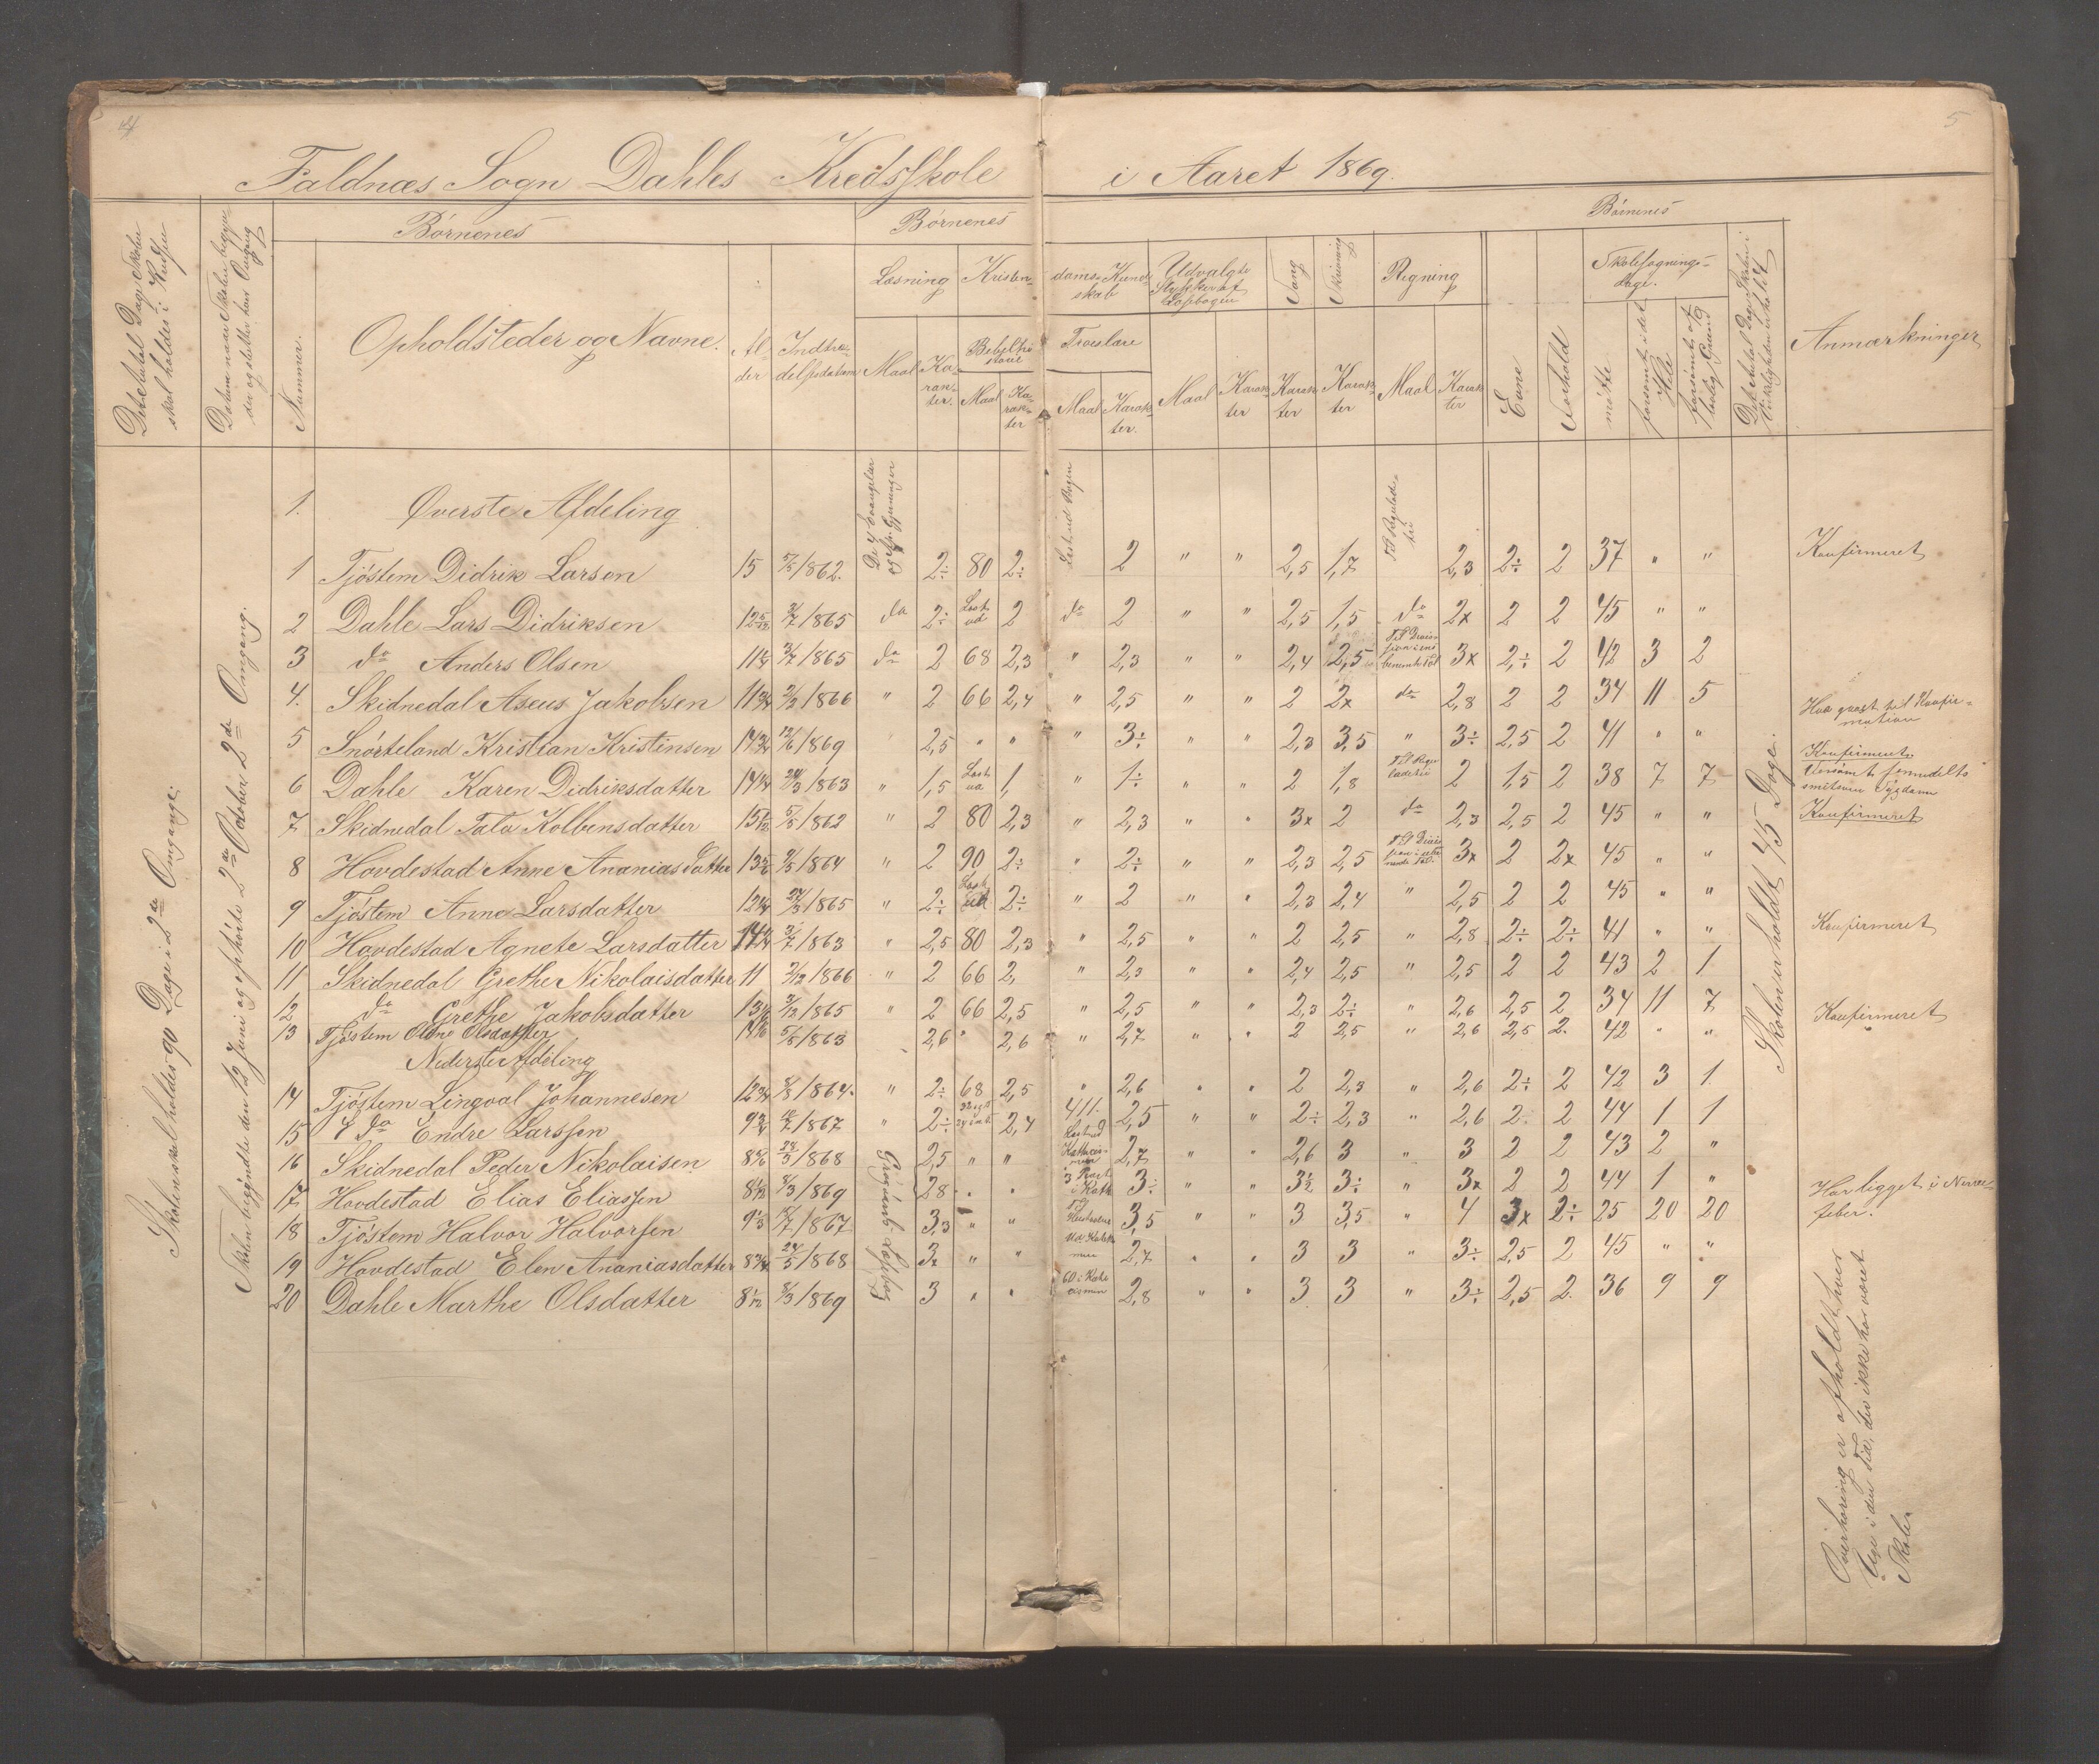 4
5
Faldnæs Sogn Dahles Kredsskole i Aaret 1869.
Det Antal Dage Skolen skal holdes i Kredsen
Datum naar Skolen begynder og slutter hver Omgang
Børnenes
Børnenes
Børnenes
Nummer.
Opholdsteder og Navne.
Alder
Indtrædelsesdatum
Læsning
Kristendoms-Kundskab
Udvalgte Stykker af Læsebogen
Sang
Skrivning
Regning
Evne
Forhold
Skolesøgnings-dage.
Anmærkninger
Maal
Karakter.
Bibelhistorie
Maal
Karakter
Troeslære
Maal
Karakter.
Maal
Karakter
Karakter
Karakter
Maal
Karakter
mødte
forsømte i det Hele
forsømte af lovlig Grund
Det Antal Dage Skolen i Virkeligheden er holdt
Skolen skal holdes 90 Dage i 2de Omgange.
Skolen begyndte den 12 Juni og ophørte 2den Oktober 2den Omgang.
1. Øverste Afdeling
1 Tjöstem Didrik Larsen 15 5/5/1862. 2÷ 80 2÷ 2 " " 2,5 1,7 2,3 2÷ 2 37 " " Konfirmeret
2 Dahle Lars Didriksen 12 5/12 3/7/1865 da 2÷ Læst ud 2 da 2 " " 2,5 1,5 da 2x 2 2 45 " "
3 do Anders Olsen 3/7/1865 da 2 68 2,3 " 2,3 " " 2,4 2,5 3x 2÷ 2 42 3 2
4. Skidnedal Aseus Jakobsen 11 3/4 2/3/1866 " 2 66 2,4 " 2,5 " " 2 2x do 2,8 2 2 34 11 5
5 Snörteland Kristian Kristinsen 14 3/4 12/6/1869 2,5 " " " 3÷ " " 2,3 3,5 " 3÷ 2,5 2 41 " "
6 Dahle Karen Didriksdatter 14 1/4 24/3/1863 " 1,5 Læst ud 1, " 1÷ " " 2 1,8 2 1,5 2 38 7 7 Konfirmeret.
7 Skidnedal Tala Kolbensdatter 15 1/12 5/5/1862 " 2 80 2,3 " 2,3 " " 3x 2 do 2,3 2,5 2 45 " " Konfirmeret
8 Hovdestad Anne Ananiasdatter 9/5/1864 " 2 90 2÷ " 2÷ " " 2,3 2,5 3x 2 2x 45 " "
9 Tjöstem Anna Larsdatter 12 1/4 27/3/1865 " 2÷ Læst ud 2÷ " 2 " " 2,3 2,4 " 2,5 2 2 45 " "
10 Hovdestad Agnete Larsdatter 3/7/1863 " 2,5 80 2,3 " 2,5 " " 2 2,5 " 2,8 2÷ 2÷ 41 " " Konfirmeret
11 Skidnedal Grethe Nikolaisdatter 11 /1866 " 2 66 2, " 2,3 " " 2,4 2,5 " 2,5 2 2 43 2 1
12 do Grethe Jakobsdatter /1865 " 2 66 2,5 " 2,5 " " 2,3 2÷ " 2,6 2,5 2 34 11 7 Konfirmeret
13 Tjöstem Olene Olsdatter 5/5/1863 2,6 " 2,6 " 2,7 " " 2 2,5 " 2,6 2,5 2. 42 " " "
Nederste Afdeling
14 Tjöstem Lingval Johannesen 12 3/4 /1864. " 2÷ 68 2,5 " 2,6 " " 2 2,3 " 2,6 2÷ 2 42 3 1.
15 do Endre Larssen 9 3/4 /1867 " 2÷ 2,4 411. 2,5 " " 2÷ 2,3 " 2,6 2. 2 44 1 1
16 Skidnedal Peder Nikolaisen 28/3/1868 2,5 " " 2,7 " " 2,6 3 " 3 2 2 43 2 "
17 Hovdestad Elias Eliassen 8 1/12 8/3/1869 2,8 " " 3÷ " " 3½ 3÷ " 3x 2 2 44 1 "
18 Tjöstem Halvor Halvorsen 9 1/3 /1867 3,3 " " 3,5 " " 3 3,5 " 4 3x 2÷ 25 20 20 Har ligget i Nervefeber.
19 Hovdestad Elen Ananiasdatter 8 3/4 24/5/1868 3x " " 2,7 " " 3 3 " 3÷ 2,5 2 45 " "
20 Dahle Marthe Olsdatter 8 1/12 8/3/1869 3 " " 2,8 " " 3 3 " 3÷ 2,5 2. 36 9 9
Skolen er holdt 45 Dage.
Overhøring er afholdt hver Uge i den Tid, der ikke har været Skole.